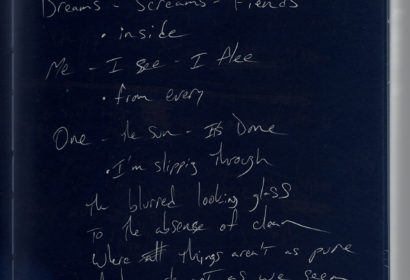 Dreams - Screams - Fiends
• inside
Me - I see - I flee
• from every
One - the Sun - It's Done
• I'm slippig through
the blurred looking glass
To the absense of
Where things aren't as pure
not as we seem